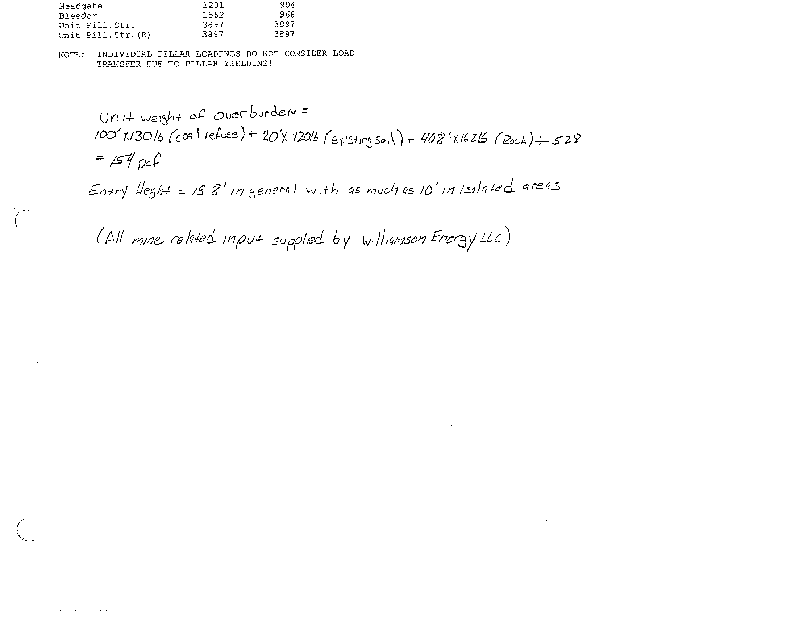 Headgate 1201 906
Bleeder 1552 966
Unit Pill.Str. 3897 3897
Unit Pill.Str.(R) 3897 3897
NOTE: INDIVIDUAL PILLAR LOADINGS DO NOT CONSIDER LOAD
TRANSFER DUE TO PILLAR YIELDING!
Unit weight of overburden =
100'x130lb (coal refuse) + 20'x 120lb (existing soil) + 408'x162lb (Rock) ÷ 528
= 154 pcf
Entry Height = is 8' in general with as much as 10' in isolated areas
(All mine related input supplied by Williamson Energy LLC)